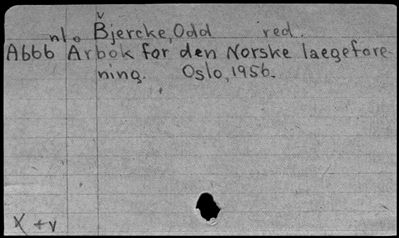 nlo Bjercke, Odd red.
A6bb Arbok for den Norske laegefore-
ning. Oslo, 1956.
X + v